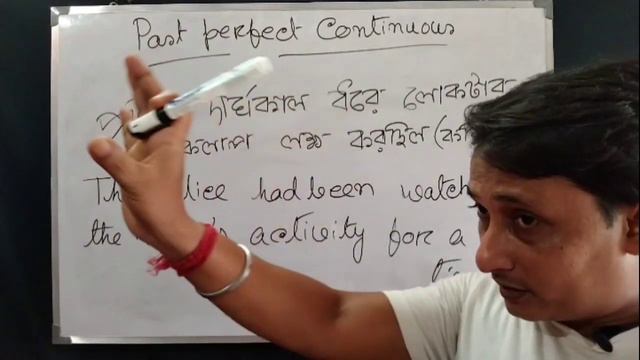 Past perfect Continuous
দীর্ঘকাল ধরে লোকটার
লক্ষ্য করছিল
had been watch
the activity for a